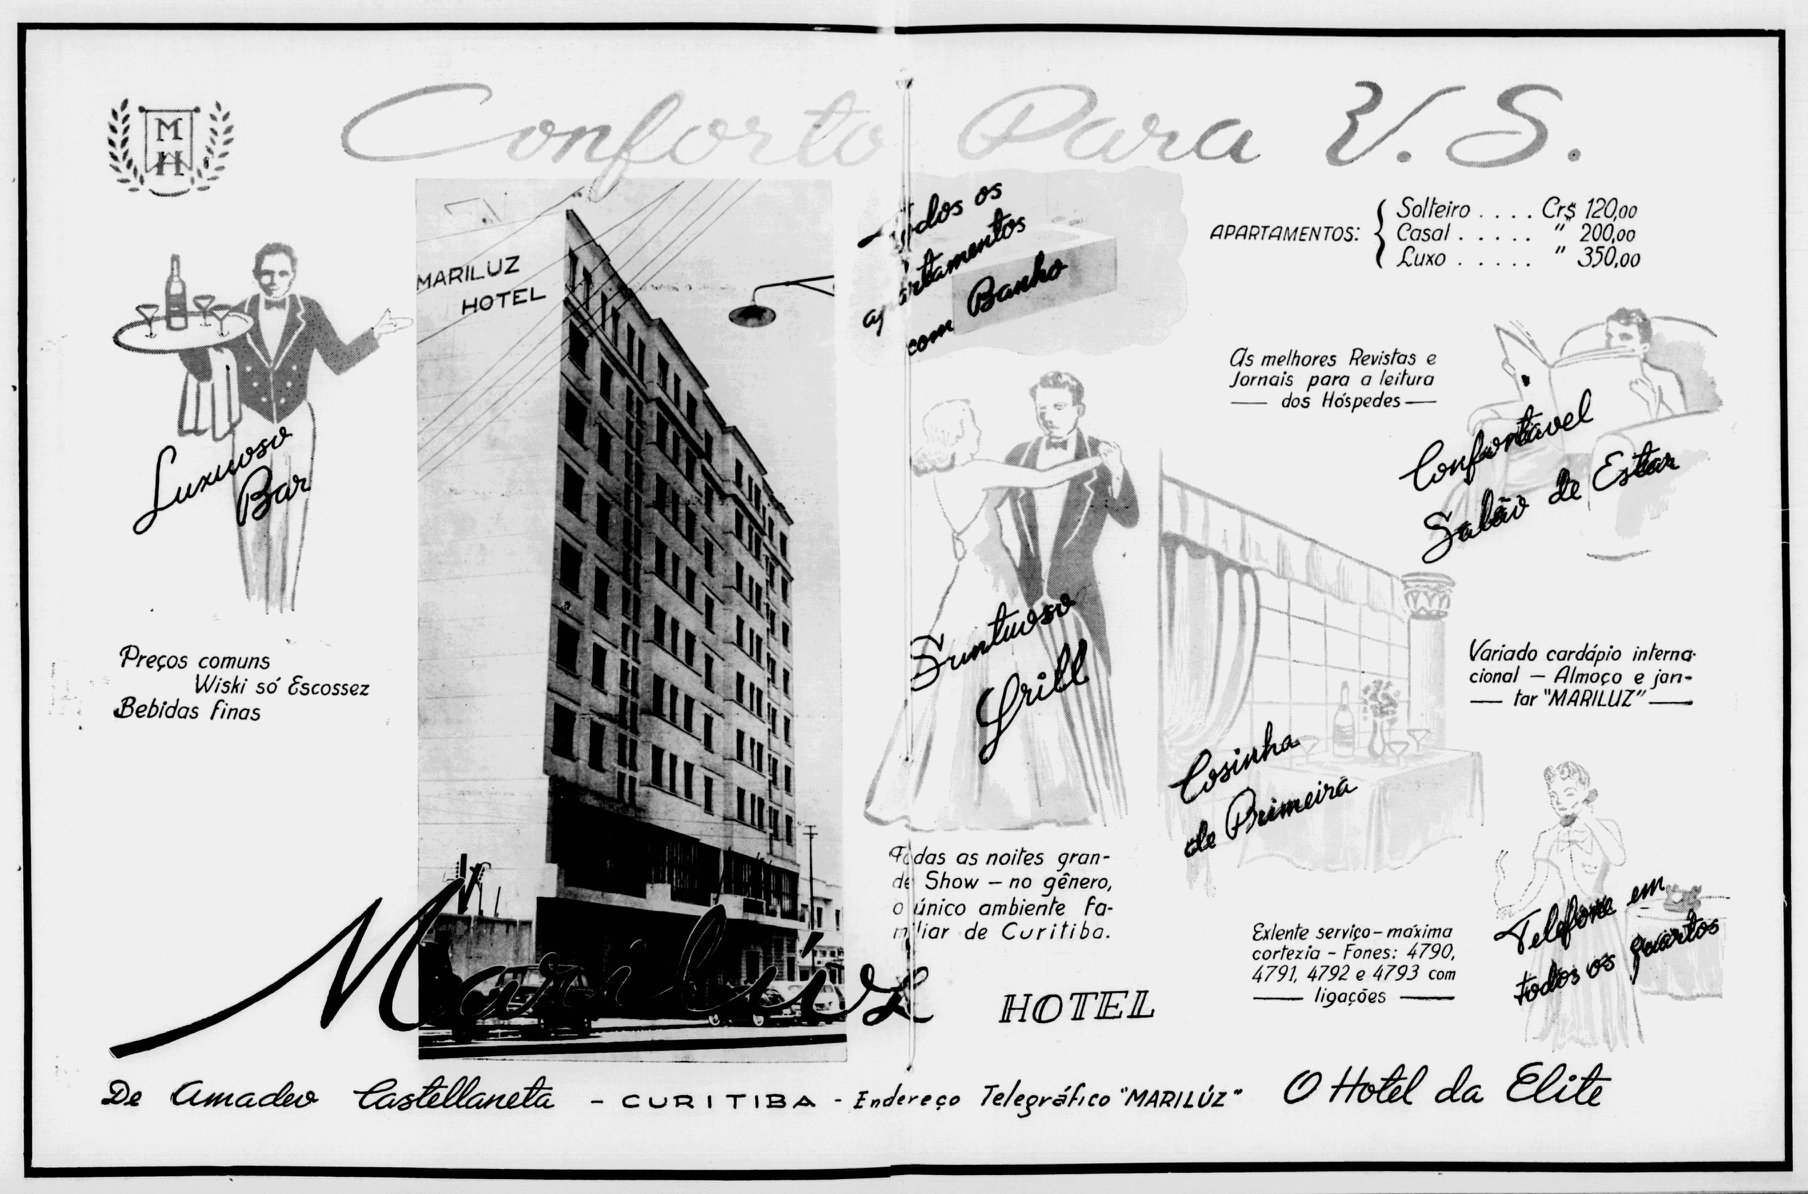 Conforto Para V. S.
M
H
MARILUZ
HOTEL
Todos os
apartamentos
com Banho
APARTAMENTOS: { Solteiro .... Cr$ 120,00
Casal ..... " 200,00
Luxo ..... " 350,00
As melhores Revistas e
Jornais para a leitura
— dos Hóspedes —
Confortavel
Salão de Estar
Luxuoso
Bar
Preços comuns
Wiski só Escossez
Bebidas finas
Suntuoso
Grill
Todas as noites gran-
de Show — no gênero,
o único ambiente fa-
miliar de Curitiba.
Cosinha
de Primeira
Variado cardápio interna-
cional — Almoço e jan-
— tar "MARILUZ" —
Exlente serviço - maxima
cortezia - Fones: 4790,
4791, 4792 e 4793 com
— ligações —
Telefone em
todos os quartos
Marilúz HOTEL
De Amadeo Castellaneta - CURITIBA - Endereço Telegráfico "MARILÚZ" O Hotel da Elite